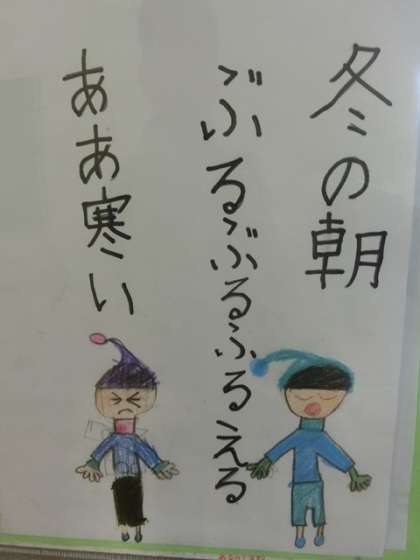 冬の朝
ぶるぶるふるえる
ああ寒い